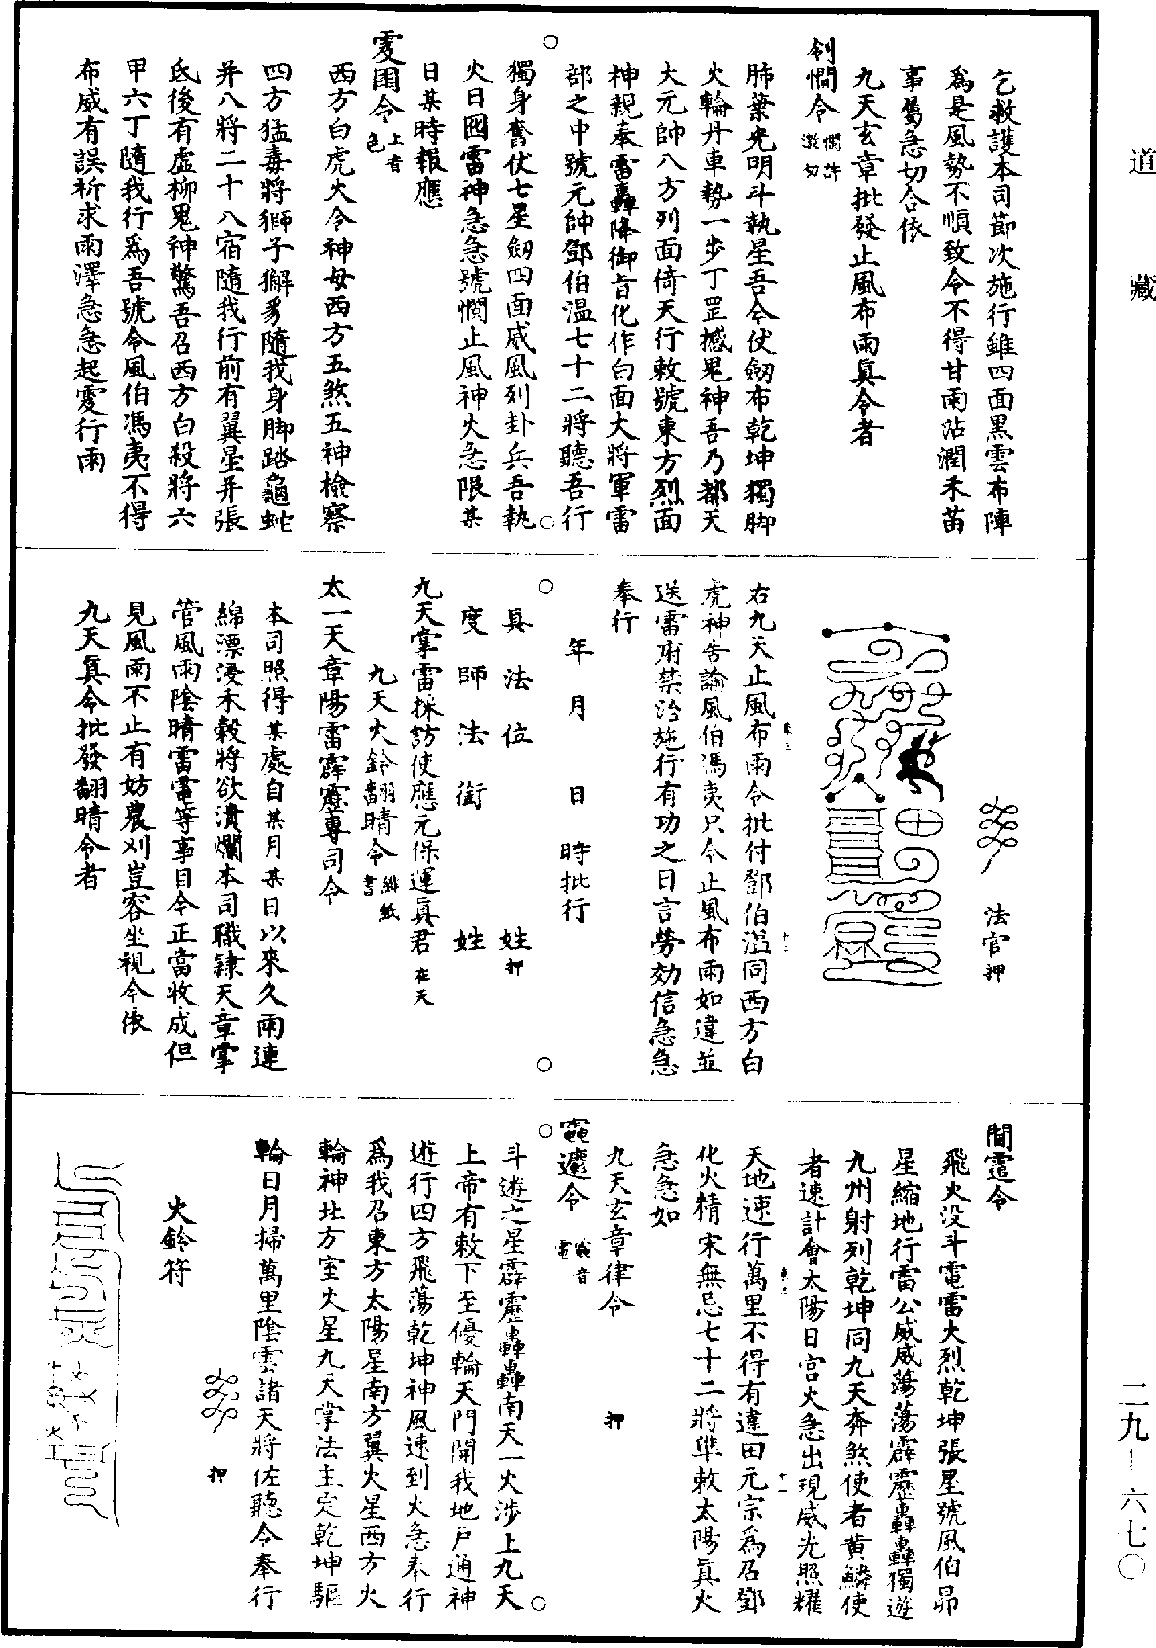 道藏
乞救護本司節次施行雖四面黑雲布陣
為是風勢不順致令不得甘雨沾潤禾苗
事屬急切合依
九天玄章批發止風布雨眞令者
憪令
肺葉光明斗執星吾今仗劒布乾坤獨脚
火輪丹車勢一步丁罡撼鬼神吾乃都天
大元帥八方列面倚天行敕號東方烈面
神親奉雷轟降御旨化作白面大將軍雷
部之中號元帥鄧伯溫七十二將聽吾行
獨身奮仗七星劒四面威風列卦兵吾執
火日囦雷神急急號憪止風神火急限某
日某時報應
囦令上音色
西方白虎火令神母西方五煞五神檢察
四方猛毒將獅子獬豸隨我身脚踏龜蛇
并八將二十八宿隨我行前有翼星并張
氐後有虛柳鬼神驚吾召西方白殺將六
甲六丁隨我行為吾號令風伯馮夷不得
布威有誤祈求雨澤急急起雯行雨
法官押
右九天止風布雨令批付鄧伯溫同西方白
虎神告諭風伯馮夷只今止風布雨如違並
送雷府禁治施行有功之日言勞効信急急
奉行
年月日時批行
具法位姓押
度師法銜姓
九天掌雷採訪使應元保運眞君在天
九天火鈴翻晴令緋紙書
太一天章陽雷霹靂專司令
本司照得某處自某月某日以來久雨連
綿漂浸禾穀將欲潰爛本司職隸天章掌
管風雨陰晴雷電等事目今正當收成但
見風雨不止有妨農刈豈容坐視今依
九天眞令批發翻晴令者
飛火沒斗電雷大烈乾坤張星號風伯昴
星縮地行雷公威威蕩蕩霹靂轟轟獨遊
九州射列乾坤同九天奔煞使者黃鱗使
者速計會太陽日宮火急出現威光照耀
天地速行萬里不得有違田元宗為召鄧
化火精宋無忌七十二將準敕太陽眞火
急急如
九天玄章律令押
斗遊之星霹靂轟轟南天一火涉上九天
上帝有敕下至優輪天門開我地户通神
遊行四方飛蕩乾坤神風速到火急奉行
為我召東方太陽星南方翼火星西方火
輪神北方室火星九天掌法主定乾坤驅
輪日月掃萬里陰雲諸天將佐聽令奉行
押
火鈴符
二九—六七〇